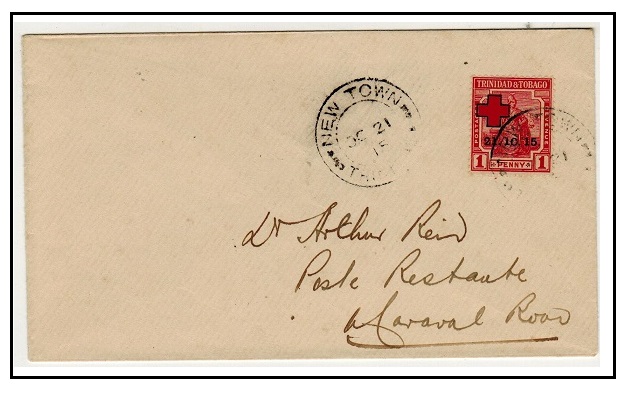 NEW TOWN
OC 21
15
TRIN
TRINIDAD & TOBAGO
POSTAGE
REVENUE
21.10.15
1 PENNY 1
Dr Arthur Reid
Poste Restante
Maraval Road